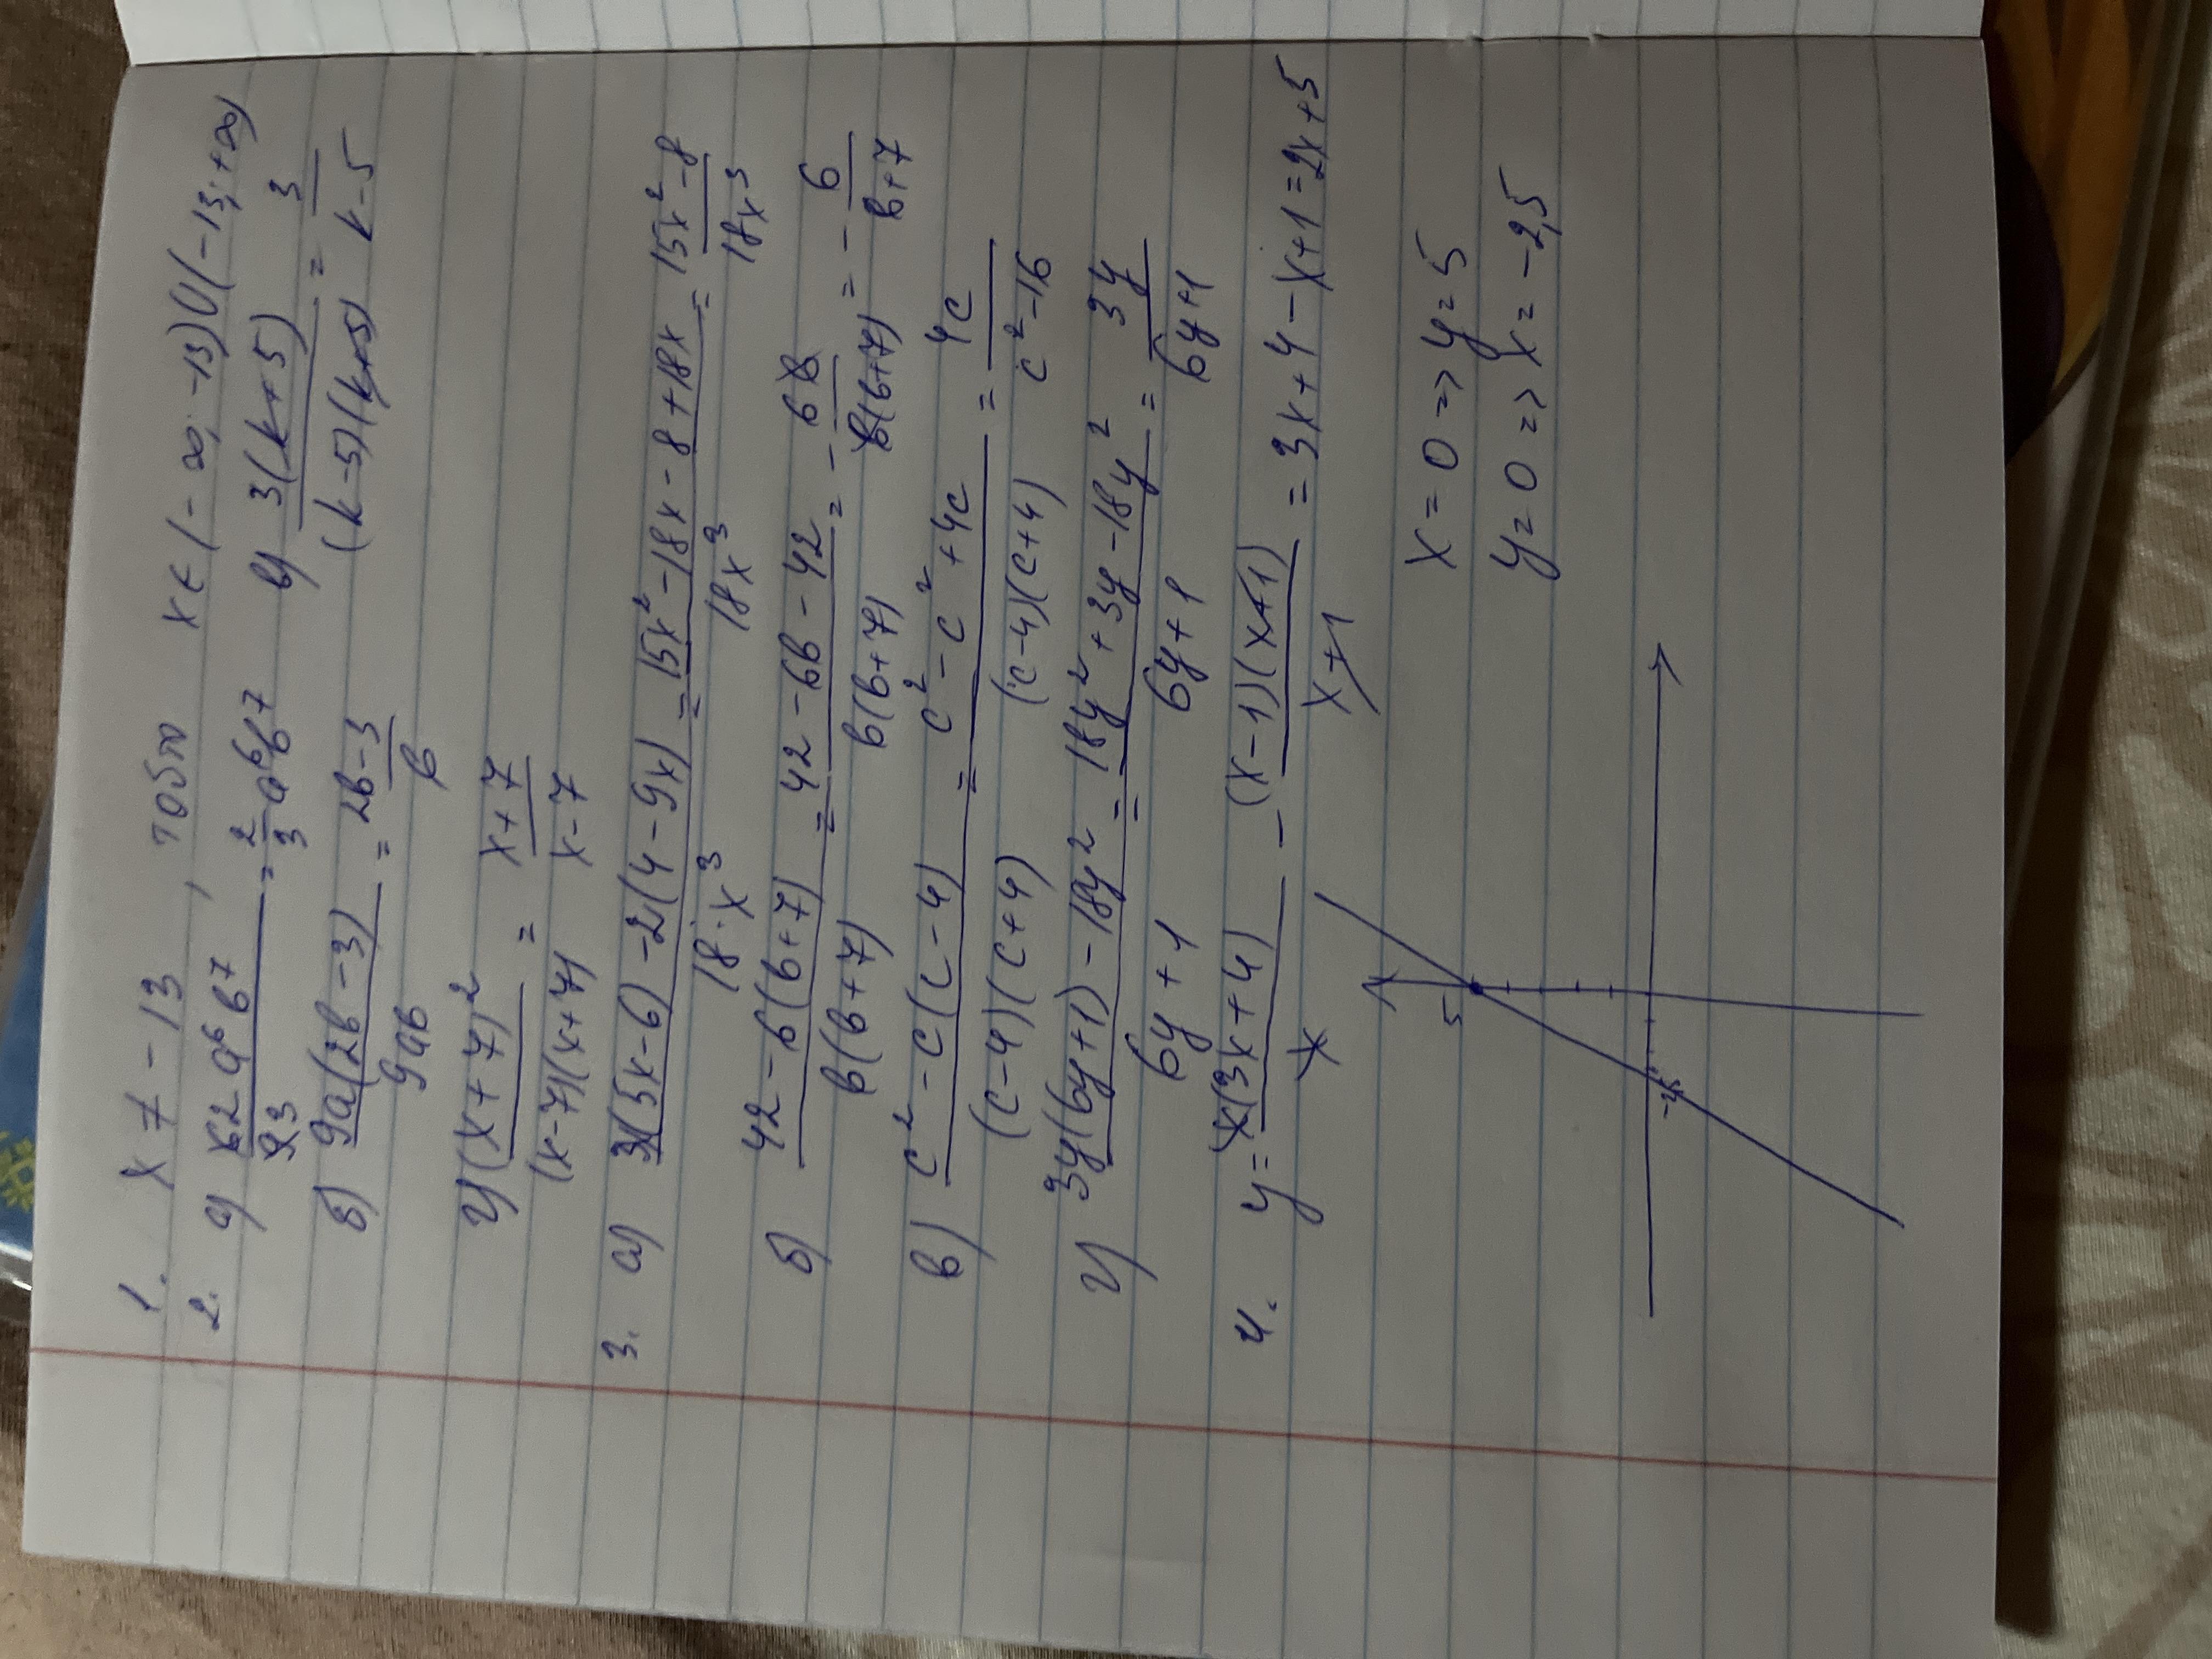 1. x ≠ -13, тобто x ∈ (-∞; -13) ∪ (-13; +∞)
2. а) 6 2 a⁶ b⁷ / 9 3 = 2/3 a⁶ b⁷ в) 3(k+5) / (k-5)(k+5) = 3 / k-5
б) 9a(2b-3) / 9ab = 2b-3 / b
г) (x+7)² / (x-7)(x+7) = x+7 / x-7
3. а) 3x(5x-6) -2(4-9x) / 18·x³ = 15x² - 18x - 8 + 18x / 18x³ = 15x² - 8 / 18x³
б) 42 - 6(b+7) / b(b+7) = 42 - 6b - 42 / b(b+7) = - 6b / b(b+7) = - 6 / b+7
в) c² - c(c-4) / (c-4)(c+4) = c² - c² + 4c / (c-4)(c+4) = 4c / c² - 16
г) 3y(6y+1) - 18y² / 6y+1 = 18y² + 3y - 18y² / 6y+1 = 3y / 6y+1
4. y = x(3x+4) / x - (x-1)(x+1) / x+1 = 3x+4-x+1 = 2x+5
x = 0 => y = 5
y = 0 => x = -2,5
5